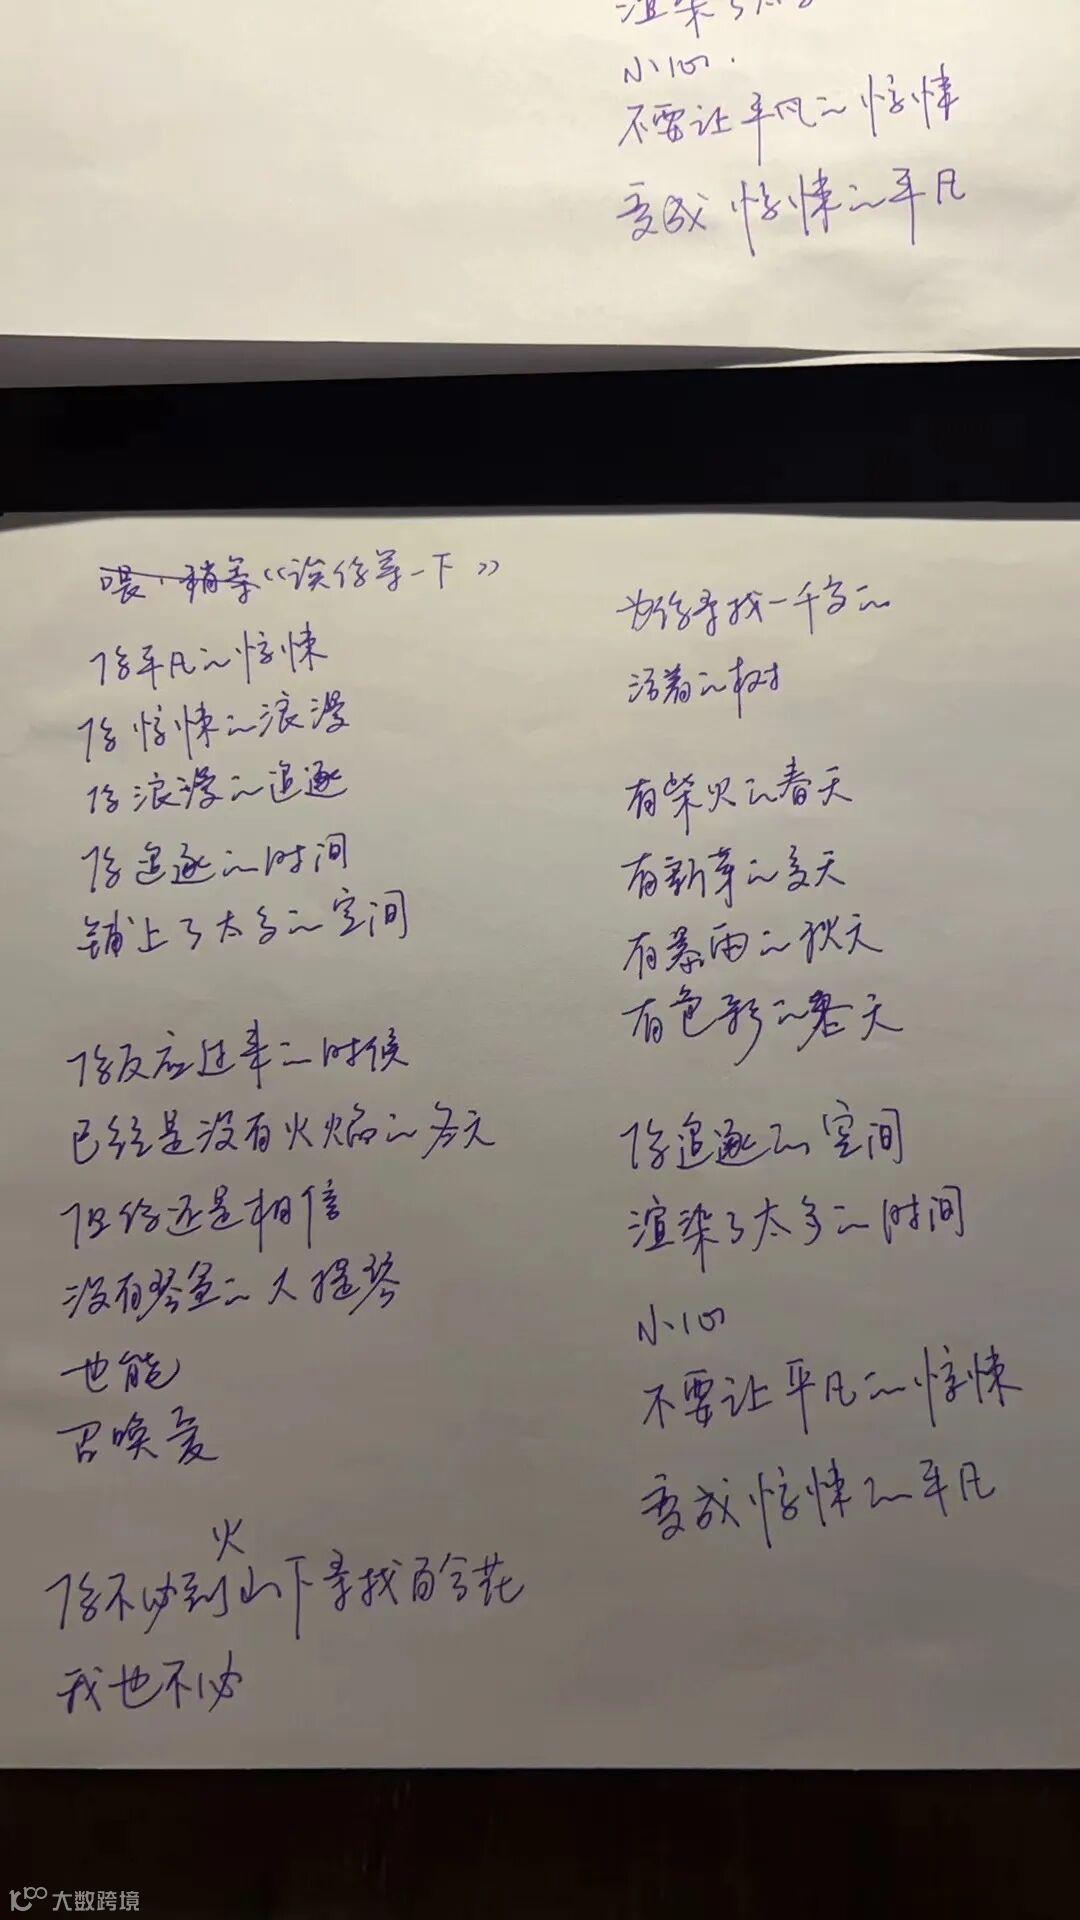 渲染了太多
小心.
不要让平凡的惊悚
变成惊悚的平凡
喂,稍等《诶你等一下》
你平凡的惊悚
你惊悚的浪漫
你浪漫的追逐
你追逐的时间
铺上了太多的空间
你反应过来的时候
已经是没有火焰的冬天
但你还是相信
没有琴弓的大提琴
也能
召唤爱
你不必到火山下寻找百合花
我也不必
为你寻找一千多的
活着的树
有柴火的春天
有新芽的夏天
有暴雨的秋天
有色彩的冬天
你追逐的空间
渲染了太多的时间
小心
不要让平凡的惊悚
变成惊悚的平凡
大数跨境